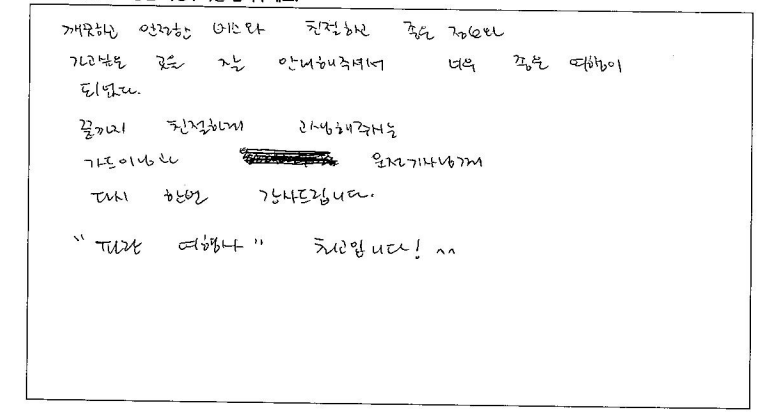 깨끗하고 안락한 버스와 친절하고 좋은 정보와
가고싶은 곳을 잘 안내해주셔서 너무 좋은 여행이
되었다.
끝까지 친절하게 고생해주시는
가드이님과 운전기사님께
다시 한번 감사드립니다.
" 여행사" 최고입니다! ^^